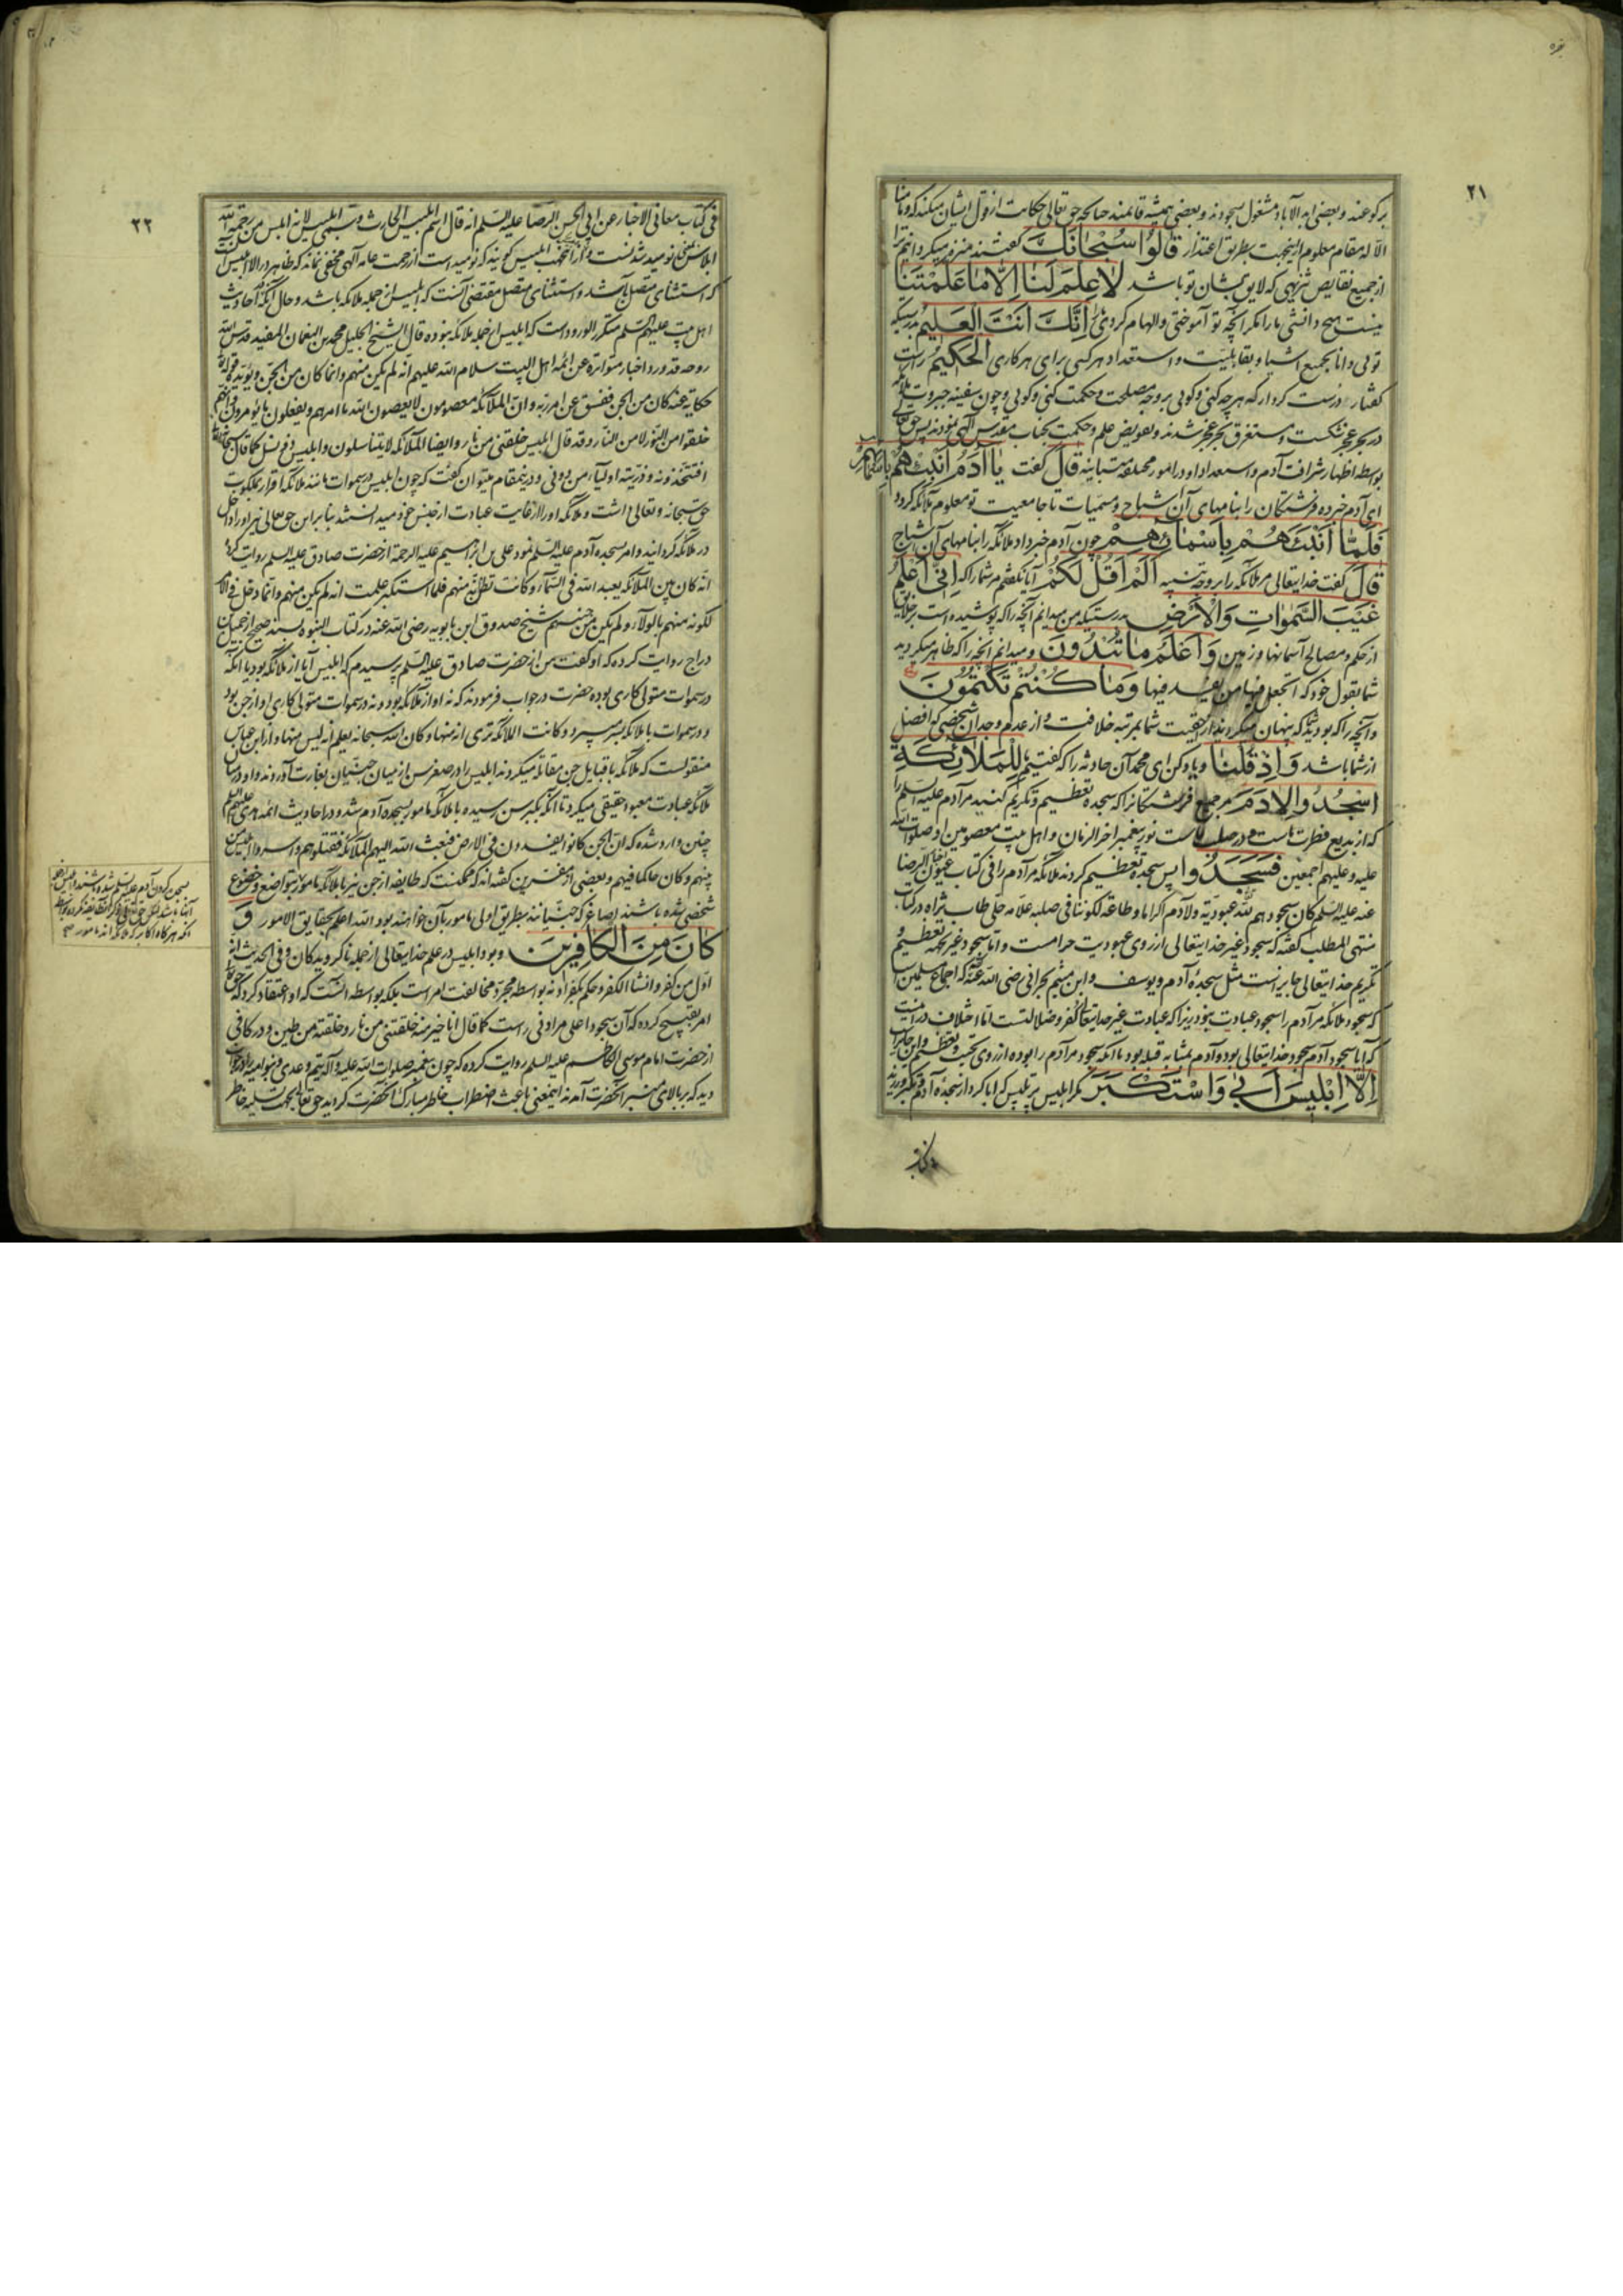 بقره
۲۱
برکوعند و بعضی ابد الآباد مشغول سجودند و بعضی همیشه قائمند چنانچه حق تعالی حکایت از قول ایشان میکند که و ما منا
الا له مقام معلوم ازینجهت بطریق اعتذار قَالُوا سُبْحَانَكَ گفتند منزه میکردانیم ترا
از جمیع نقایص تنزیهی که لایق بشان تو باشد لَا عِلْمَ لَنَا اِلَّا مَا عَلَّمْتَنَا
نیست هیچ دانشی ما را مگر آنچه تو آموختی و الهام کردی اِنَّكَ اَنْتَ الْعَلِيمُ بدرستیکه
توئی دانا بجمیع اشیا و بقابلیت و استعداد هر کسی برای هر کاری الْحَكِيمُ راست
گفتار درست کردار که هر چه کنی و کوئی بر وجه مصلحت و حکمت کنی و کوئی و چون سفینه جبروت ملائکه
در بحر عجز شکست و مستغرق بحر عجز شدند و تفویض علم و حکمت بجناب مقدس الهی نمودند پس حق تعالی
بواسطه اظهار شرافت آدم و استعداد او در امور مختلفه متباینه قَالَ گفت يَا اٰدَمُ اَنْبِئْهُمْ بِاَسْمَائِهِمْ
ای آدم خبر ده فرشتگان را بنامهای آن اشباح و مسمیات تا جامعیت تو معلوم ملائکه کردد
فَلَمَّا اَنْبَاَهُمْ بِاَسْمَائِهِمْ چون آدم خبر داد ملائکه را بنامهای آن اشباح
قَالَ گفت خدایتعالی مر ملائکه را بر وجه تنبیه اَلَمْ اَقُلْ لَكُمْ آیا نگفتم مر شما را که اِنِّي اَعْلَمُ
غَيْبَ السَّمٰوَاتِ وَالْاَرْضِ بدرستیکه من میدانم آنچه را که پوشیده است بر خلایق
از حکم و مصالح آسمانها و زمین وَاَعْلَمُ مَا تُبْدُونَ و میدانم آنچه را که ظاهر میکردید
شما بقول خود که اتجعل فیها من یفسد فیها وَمَا كُنْتُمْ تَكْتُمُونَ
و آنچه را که بودید که پنهان میکردید از حقیت شما بمرتبه خلافت و از عدم وجدان شخصی که افضل
از شما باشد وَاِذْ قُلْنَا و یاد کن ای محمد آن حادثه را که گفتیم لِلْمَلَائِكَةِ
اسْجُدُوا لِاٰدَمَ مر جمیع فرشتگانرا که سجده تعظیم و تکریم کنید مر آدم علیه السلم را
که از بدیع فطرت ماست و در صلب اوست نور پیغمبر اخر الزمان و اهل بیت معصومین او صلوات الله
علیه و علیهم اجمعین فَسَجَدُوا پس سجده تعظیم کردند ملائکه مر آدم را فی کتاب عیون اخبار الرضا
عنه علیه السلم کان سجودهم لله عبودیة و لآدم اکراما و طاعة لکوننا فی صلبه علامه حلی طاب ثراه در کتاب
منتهی المطلب گفته که سجود غیر خدایتعالی از روی عبودیت حرامست و اما سجود غیر بجهة تعظیم و
تکریم خدایتعالی جایز است مثل سجدهٔ آدم و یوسف و ابن میثم بحرانی رضی الله عنه گفته که اجماع مسلمین است
که سجود ملائکه مر آدم را سجود عبادت نبود زیرا که عبادت غیر خدایتعالی کفر و ضلالتست اما اختلاف در اینست
که آیا سجود آدم سجود خدایتعالی بود و آدم بمثابه قبله بود یا آنکه سجود مر آدم را بوده از روی تحیت و تعظیم و این جایز است
اِلَّا اِبْلِيسَ اَبٰى وَاسْتَكْبَرَ مگر ابلیس پر تلبیس که ابا کرد از سجدهٔ آدم و تکبر ورزید
۲۲
فی کتاب معانی الاخبار عن ابی الحسن الرضا علیه السلم انه قال اسم ابلیس الحارث و سمی ابلیس لانه ابلس من رحمة الله
ابلاس بمعنی نومید شدنست و از آنجهت ابلیس کویند که نومید است از رحمت عامه الهی مخفی نماند که ظاهر در الا ابلیس آنست
که استثنای متصل باشد و استثنای متصل مقتضی آنست که ابلیس از جمله ملائکه باشد و حال آنکه احادیث
اهل بیت علیهم السلم متکرر الورود است که ابلیس از جمله ملائکه نبوده قال الشیخ الجلیل محمد بن النعمان المفید قدس الله
روحه قد ورد اخبار متواترة عن ائمة اهل البیت سلام الله علیهم انه لم یکن منهم و انما کان من الجن و یؤیده قوله تعالی
حکایة عنه کان من الجن ففسق عن امر ربه و ان الملائکة معصومون لا یعصون الله ما امرهم و یفعلون ما یؤمرون و انهم
خلقوا من النور لا من النار و قد قال ابلیس خلقتنی من نار و ایضا الملائکة لا یتناسلون و ابلیس ذو نسل کما قال سبحانه
افتتخذونه و ذریته اولیاء من دونی و درینمقام میتوان گفت که چون ابلیس در سموات مانند ملائکه اقرار بملکوت
حق سبحانه و تعالی داشت و ملائکه او را از غایت عبادت از جنس خود میدانستند بنا برین حق تعالی نیز او را داخل
در ملائکه کردانید و امر بسجده آدم علیه السلم نمود علی بن ابراهیم علیه الرحمة از حضرت صادق علیه السلم روایت کرده
انه کان بین الملائکة یعبد الله فی السماء و کانت تظن انه منهم فلما استکبر علمت انه لم یکن منهم و انما دخل فی الامر
لکونه منهم بالولاء و لم یکن من جنسهم شیخ صدوق ابن بابویه رضی الله عنه در کتاب النبوه بسند صحیح از جمیل بن
دراج روایت کرده که او گفت من از حضرت صادق علیه السلم پرسیدم که ابلیس آیا از ملائکه بود یا آنکه
در سموات متولی کاری بوده حضرت در جواب فرمودند که نه او از ملائکه بود و نه در سموات متولی کاری او از جن بود
و در سموات با ملائکه بسر میبرد و کانت الملائکة تری انه منها و کان الله سبحانه یعلم انه لیس منها و از ابن عباس
منقولست که ملائکه با قبایل جن مقاتله میکردند ابلیس را در صغر سن از میان جنیان بغارت آوردند و او در میان
ملائکه عبادت معبود حقیقی میکرد تا آنکه بکبر سن رسیده با ملائکه مامور بسجده آدم شد و در احادیث ائمه هدی علیهم السلم
چنین وارد شده که ان الجن کانوا یفسدون فی الارض فبعث الله الیهم الملائکة فقتلوهم و اسروا ابلیس من
بینهم و کان حاکما فیهم و بعضی از مفسرین گفته اند که ممکنست که طایفه از جن نیز با ملائکه مامور بتواضع و خضوع
شخصی شده باشند اصاغر که جنیانند بطریق اولی مامور بآن خواهند بود و الله اعلم بحقایق الامور وَ
كَانَ مِنَ الْكَافِرِينَ و بود ابلیس در علم خدایتعالی از جمله ناکرویدکان و فی الحدیث انه
اول من کفر و انشا الکفر و حکم بکفر او نه بواسطه مجرد مخالفت امر است بلکه بواسطه آنست که او اعتقاد کرد که حق تعالی
امر بقبیح کرده که آن سجود اعلی مر ادنی راست کما قال انا خیر منه خلقتنی من نار و خلقته من طین و در کافی
از حضرت امام موسی الکاظم علیه السلم روایت کرده که چون پیغمبر صلوات الله علیه و آله تیم و عدی و بنو امیه را در خواب
دید که بر بالای منبر آنحضرت آمدند اینمعنی باعث اضطراب خاطر مبارک آنحضرت کردید حق تعالی بجهت تسلیه خاطر